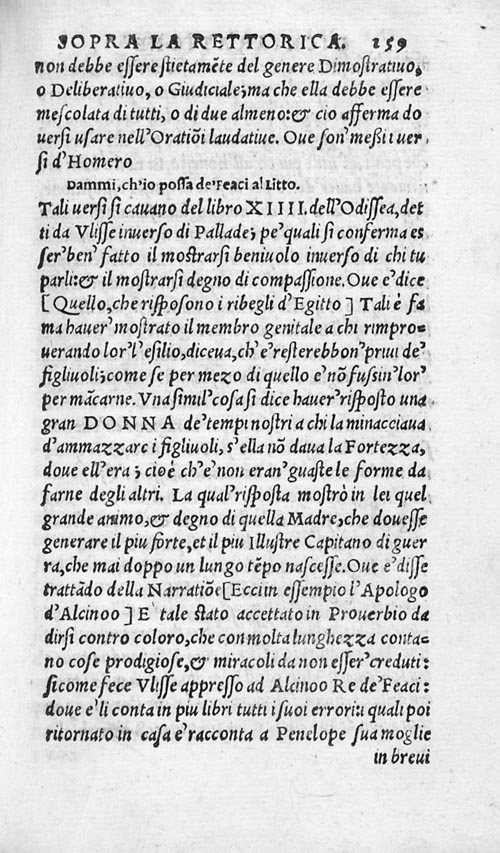 SOPRA LA RETTORICA. 159
non debbe eſſere ſtietamẽte del genere Dimoſtratiuo,
o Deliberatiuo, o Giudiciale; ma che ella debbe eſſere
meſcolata di tutti, o di due almeno: & cio afferma do
uerſi uſare nell'Oratiõi laudatiue. Oue ſon' meßi i uer-
ſi d'Homero
Dammi, ch'io poſſa de'Feaci al Litto.
Tali uerſi ſi cauano del libro XIIII. dell'Odiſſea, det
ti da Vliſſe inuerſo di Pallade; pe'quali ſi conferma eſ
ſer'ben' fatto il moſtrarſi beniuolo inuerſo di chi tu
parli: & il moſtrarſi degno di compaſſione. Oue e'dice
[Quello, che riſpoſono i ribegli d'Egitto] Tali è fa
ma hauer' moſtrato il membro genitale a chi rimpro=
uerando lor'l'eſilio, diceua, ch'e'reſterebbon'priui de'
figliuoli; come ſe per mezo di quello e'nõ fuſſin'lor'
per mãcarne. Vna ſimil'coſa ſi dice hauer'riſpoſto una
gran DONNA de'tempi noſtri a chi la minacciaua
d'ammazzarc i figliuoli, s'ella nõ daua la Fortezza,
doue ell'era; cioè ch'e'non eran'guaſte le forme da
farne degli altri. La qual'riſpoſta moſtrò in lei quel
grande animo, & degno di quella Madre, che doueſſe
generare il piu forte, et il piu Illuſtre Capitano di guer
ra, che mai doppo un lungo tẽpo naſceſſe. Oue e'diſſe
trattãdo della Narratiõe [Ecci in eſſempio l'Apologo
d'Alcinoo] E' tale ſtato accettato in Prouerbio da
dirſi contro coloro, che con molta lunghezza conta=
no coſe prodigioſe, & miracoli da non eſſer'creduti:
ſicome fece Vliſſe appreſſo ad Alcinoo Re de'Feaci:
doue e'li conta in piu libri tutti i ſuoi errori: i quali poi
ritornato in caſa e'racconta a Penelope ſua moglie
in breui